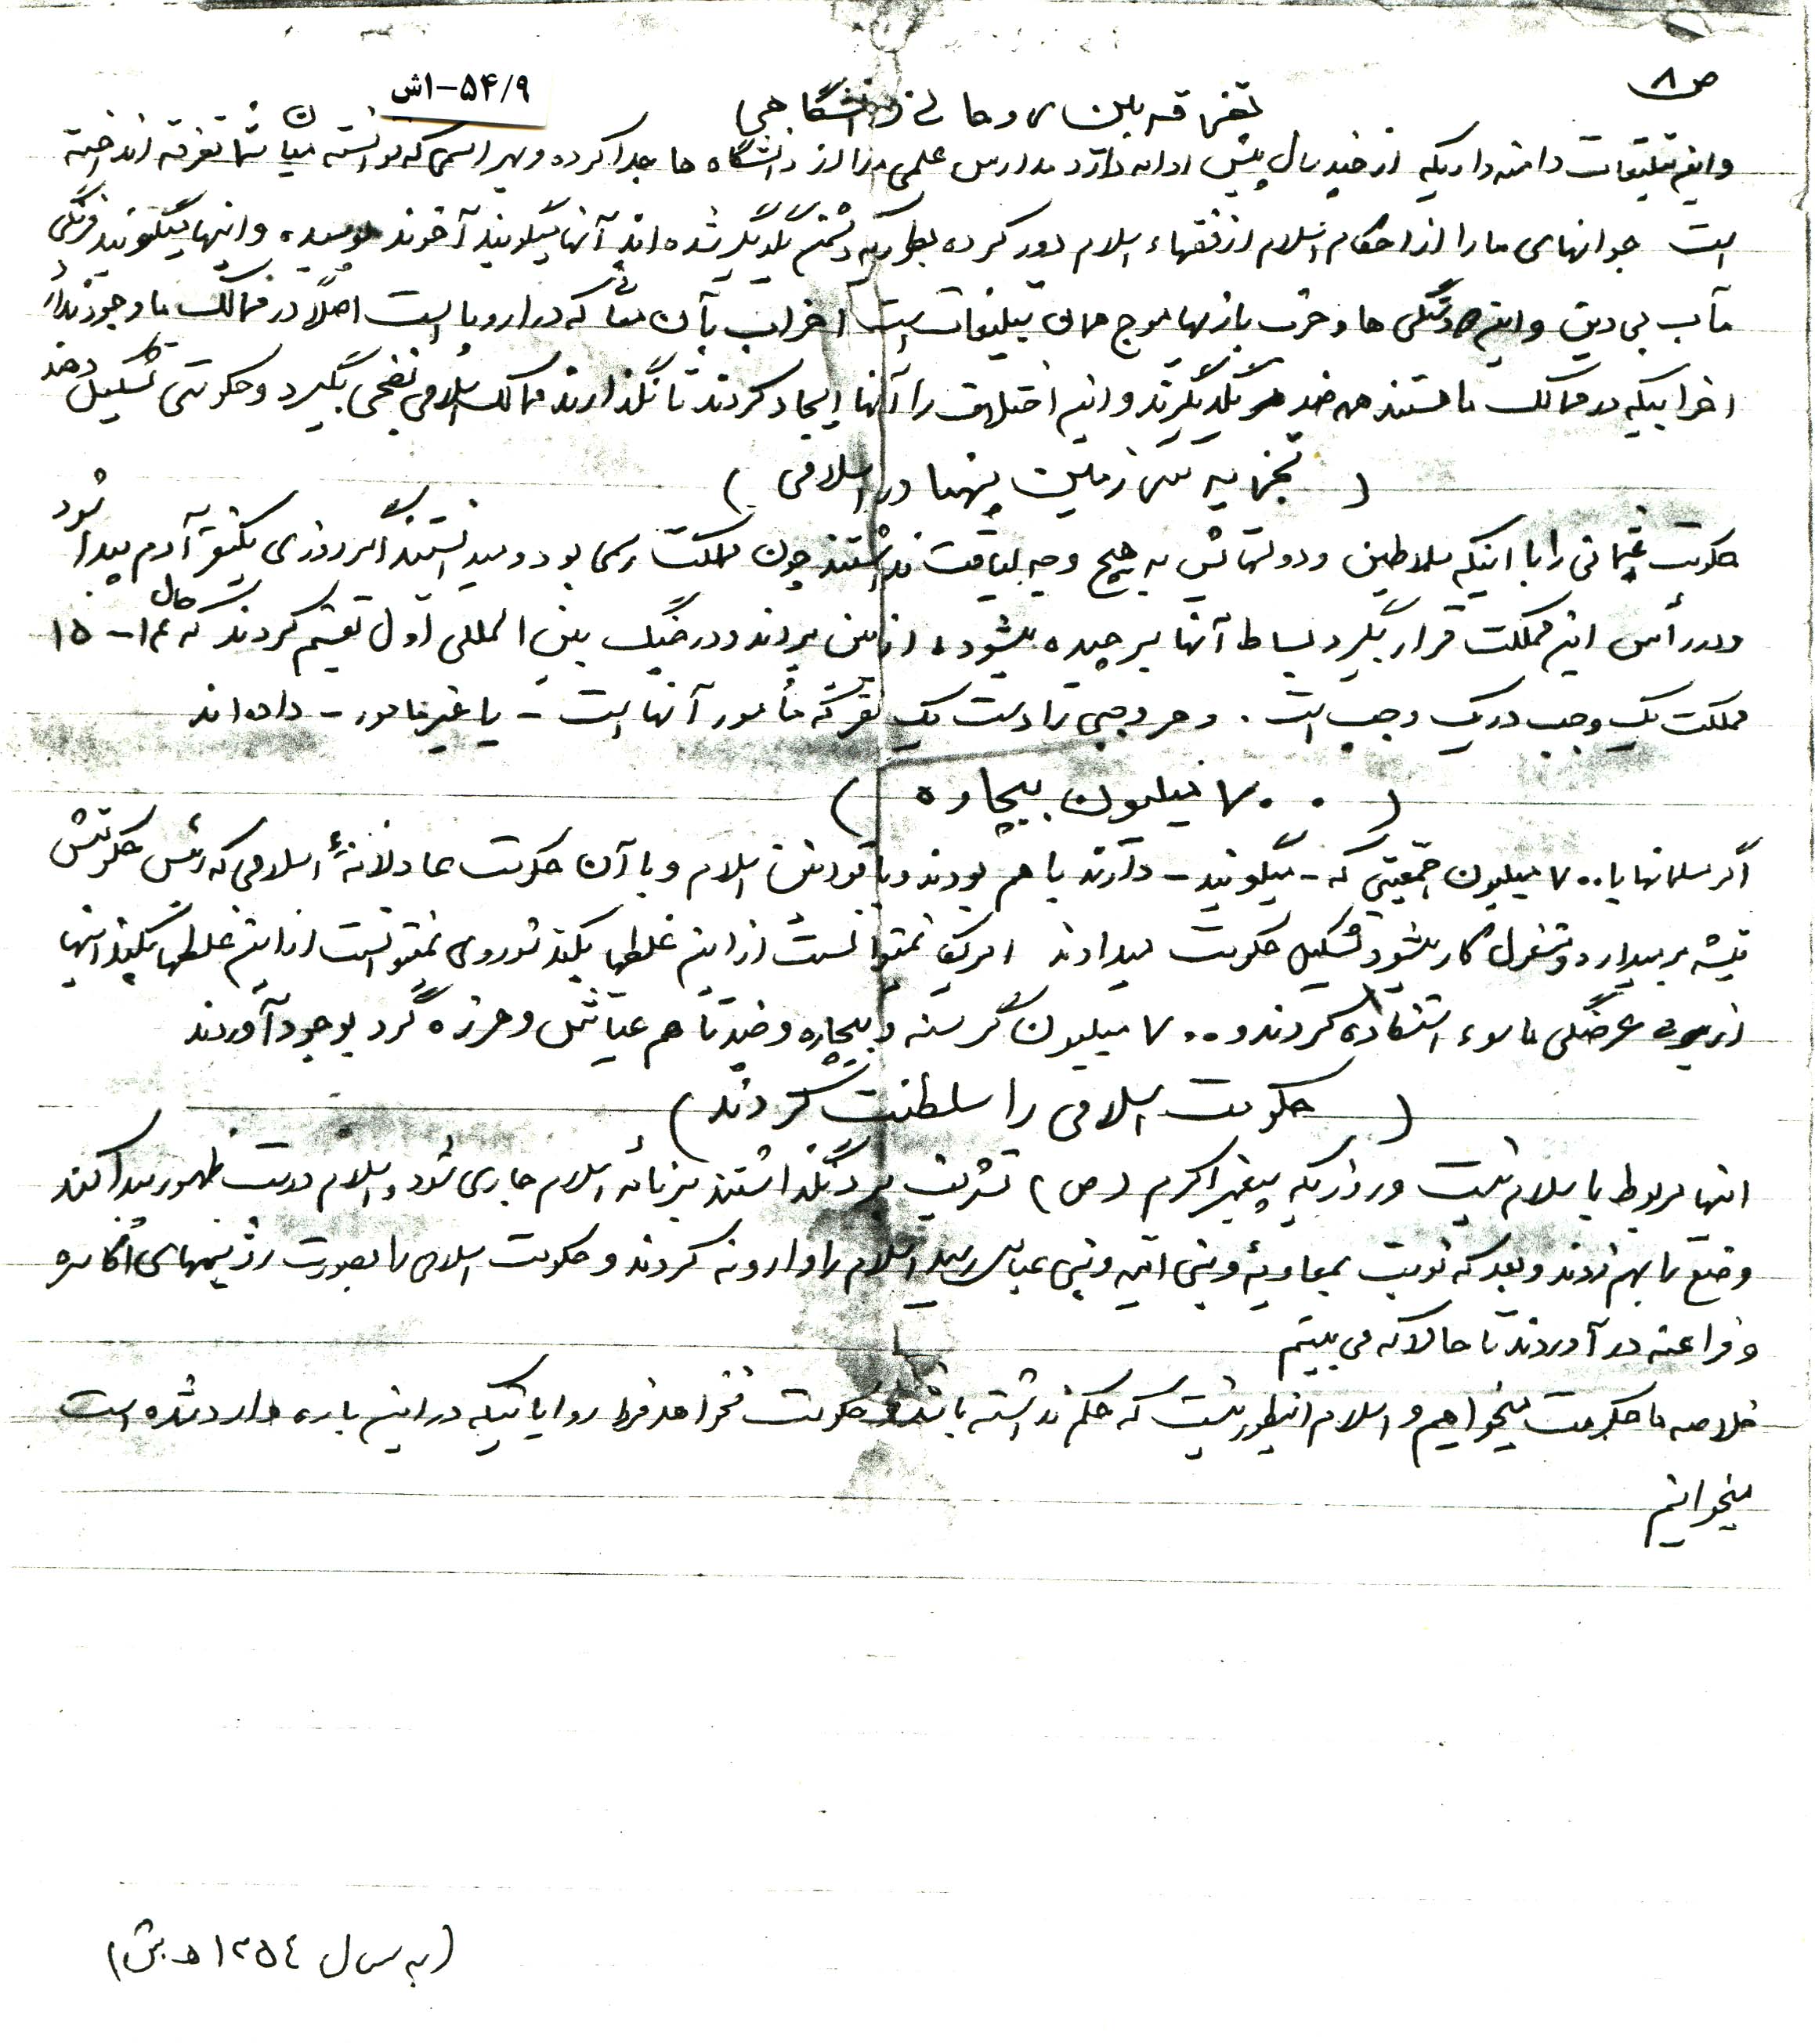 ص ۸
۵۴/۹-۱ش
تفرقه بین روحانی و دانشگاهی)
و این تبلیغات دامنه داریکه از چند سال پیش ادامه دارد مدارس علمی ما را از دانشگاه ها جدا کرده و بهر اسمی که توانسته میان شما تفرقه انداخته
است جوانهای ما را از احکام اسلام از فقهاء اسلام دور کرده بطوریکه دشمن یکدیگر شده اند آنها میگویند آخوند پوسیده و اینها میگویند فرنگی
مآب بی دین و این دو دستگی ها و حزب بازیها موج همان تبلیغات است احزاب بآن معنائی که در اروپا است اصلاً در ممالک ما وجود ندارد
احزابیکه در ممالک ما هستند همه ضد یکدیگرند و این اختلاف را آنها ایجاد کردند تا نگذارند ممالک اسلامی نضجی بگیرد و حکومتی تشکیل دهند
(تجزیه سرزمین پهناور اسلامی)
حکومت عثمانی را با اینکه سلاطین و دولتهائش به هیچ وجه لیاقت نداشتند چون مملکت رسمی بود و میدانستند اگر روزی یکنفر آدم پیدا شود
و در رأس این مملکت قرار بگیرد بساط آنها برچیده میشود، از بین بردند و در جنگ بین المللی اول تقسیم کردند که حال ۱۴-۱۵
مملکت یک وجب در یک وجب است. و هر وجبی را دست یک نفر که مأمور آنها است - یا غیر مامور - داده اند
(۷۰۰ میلیون بیچاره)
اگر مسلمانها با ۷۰۰ میلیون جمعیتی که - میگویند - دارند با هم بودند و با قوانین اسلام و با آن حکومت عادلانهٔ اسلامی که رئیس حکومتش
تیشه بر میدارد و مشغول کار میشود تشکیل حکومت میدادند امریکا نمیتوانست از این غلطها بکند شوروی نمیتوانست از این غلطها بکند اینها
از بی عرضگی ما سوء استفاده کردند و ۷۰۰ میلیون گرسنه و بیچاره و چند تا هم عیاش و هرزه گرد بوجود آوردند
(حکومت اسلامی را سلطنت کردند)
اینها مربوط با سلام نیست و روزیکه پیغمبر اکرم (ص) تشریف برد نگذاشتند برنامه اسلام جاری شود و اسلام درست ظهور پیدا کند
وضع را بهم زدند و بعد که نوبت بمعاویهٔ و بنی امیه و بنی عباس رسید اسلام را وارونه کردند و حکومت اسلامی را بصورت رژیمهای اکاسره
و فراعنه در آوردند تا حالا که می بینیم
خلاصه ما حکومت میخواهیم و اسلام اینطور نیست که حکم نداشته باشد و حکومت نخواهد فردا روایاتیکه در این باره وارد شده است
میخوانیم
(به سال ۱۳۵٤ ه ش)